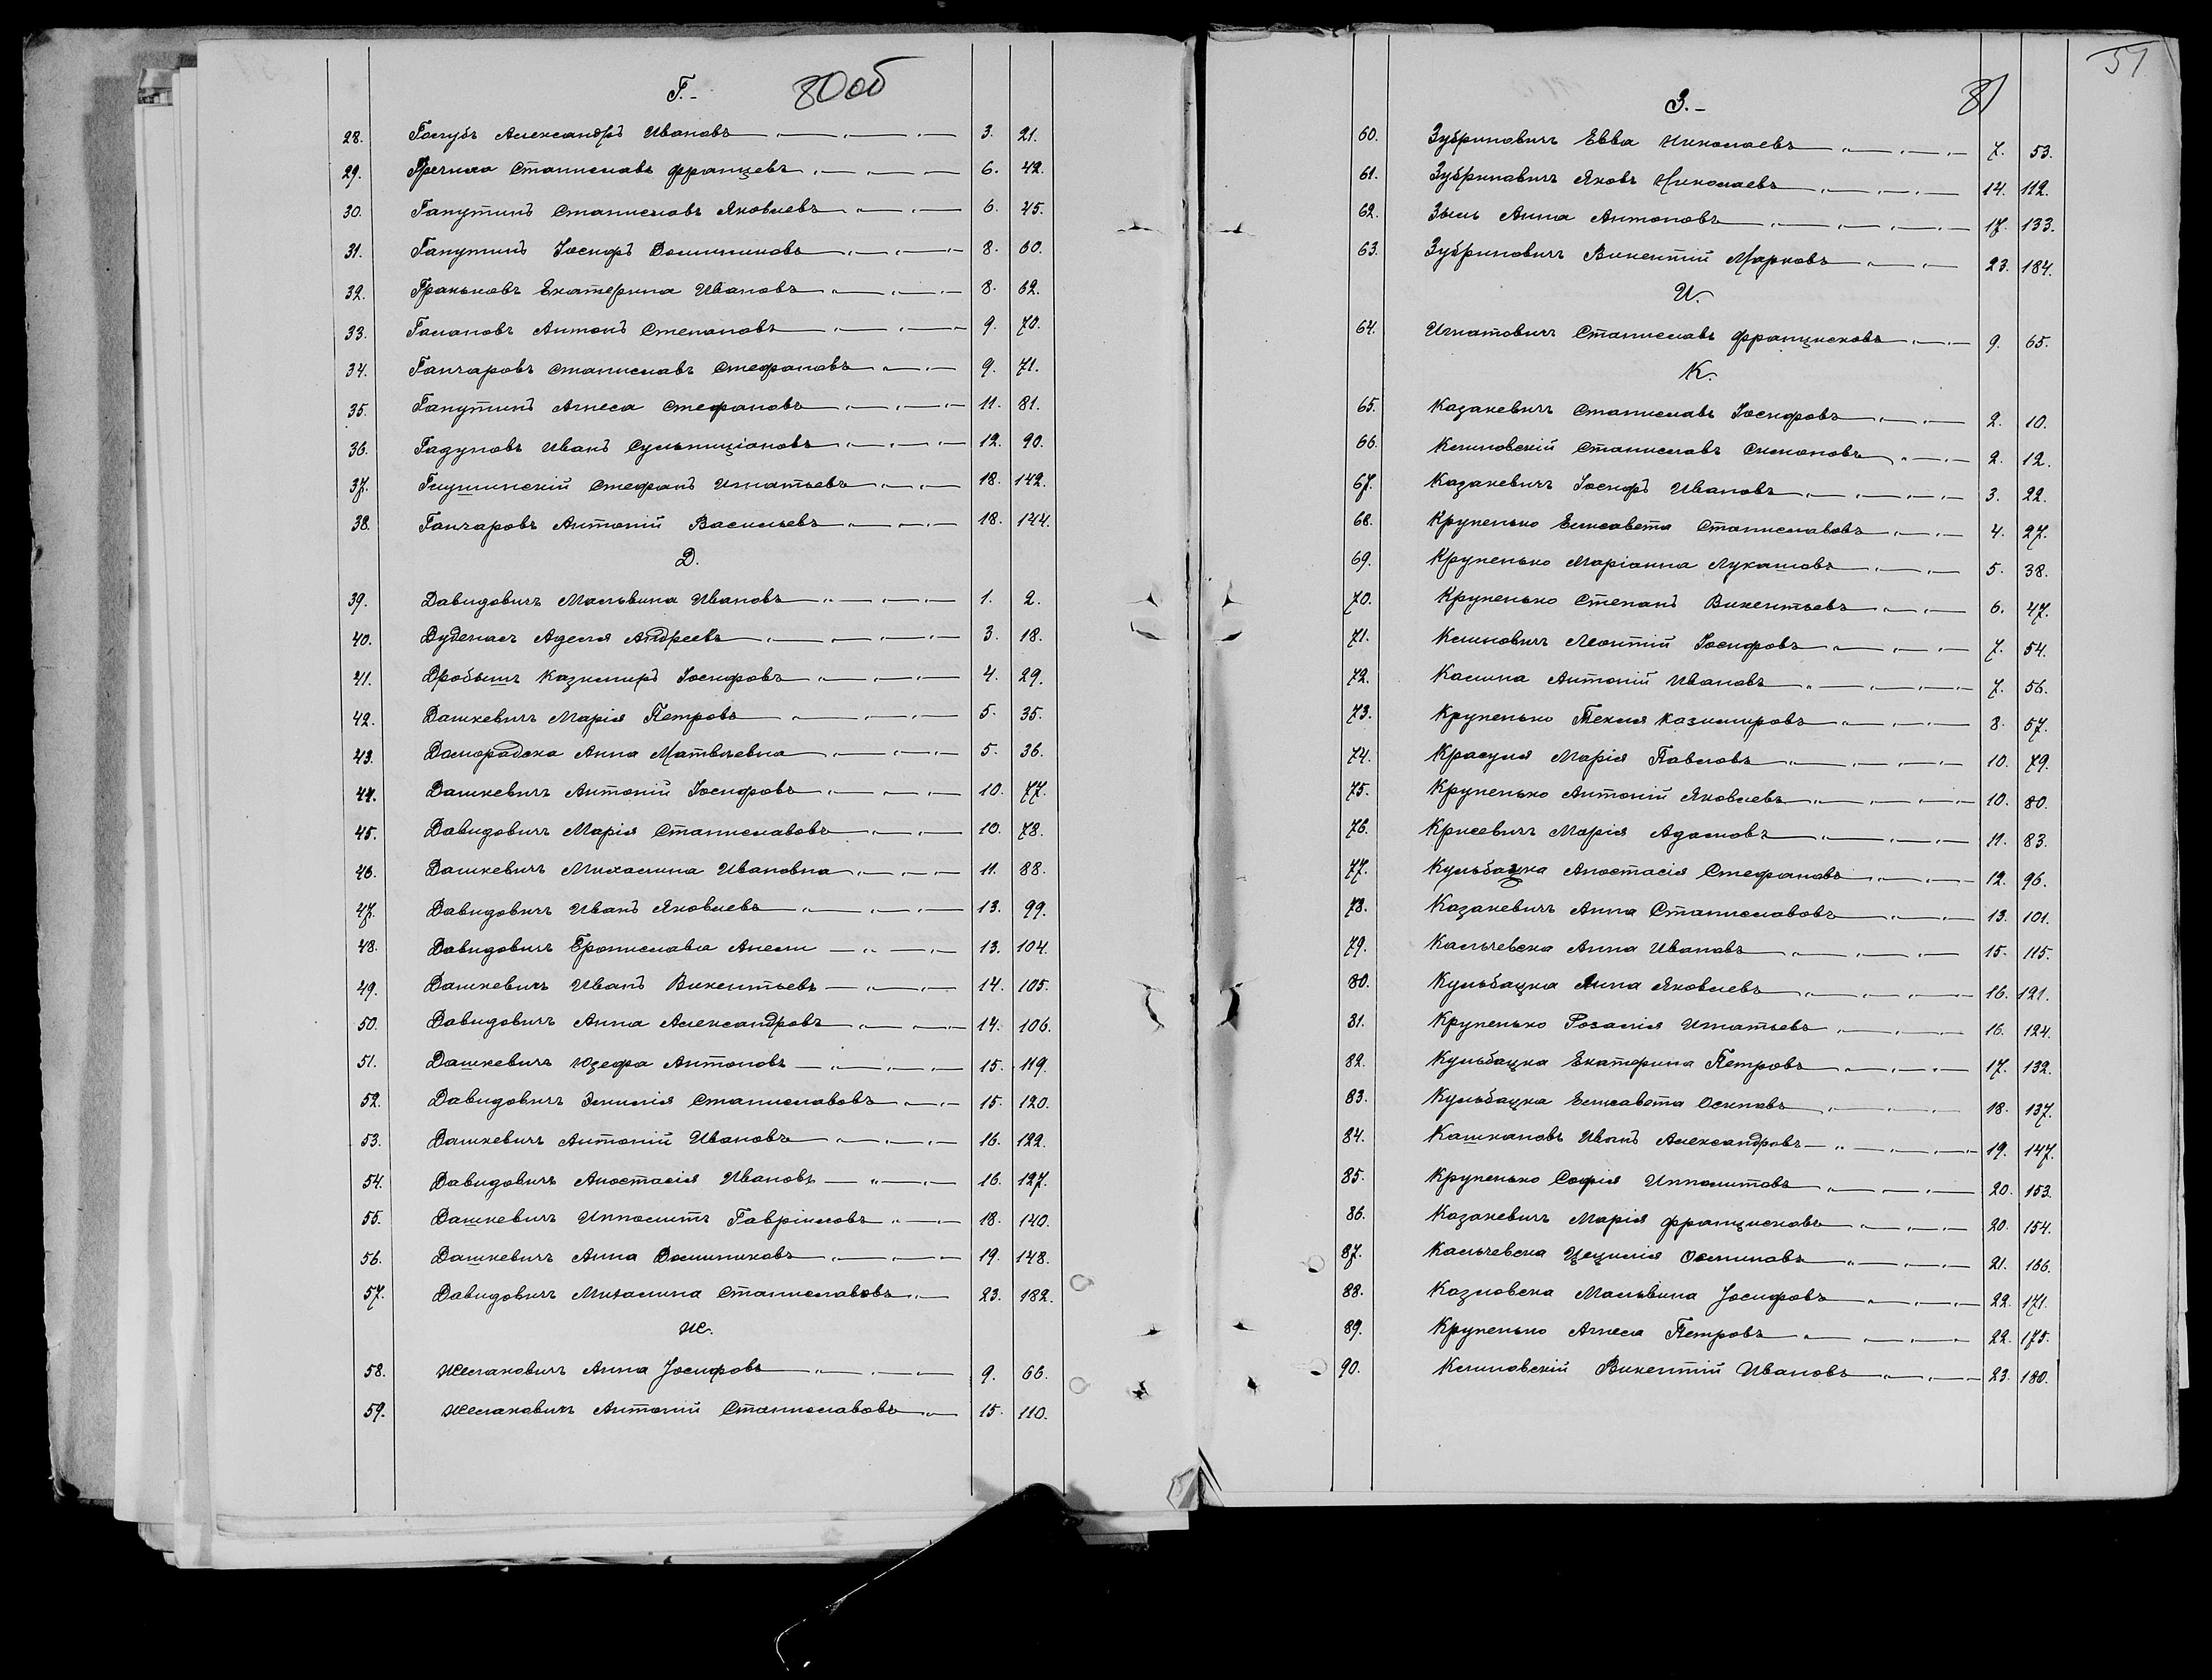 Г.- 80об
28. Голубъ Александръ Ивановъ 3. 21.
29. Гречиха Станиславъ Францевъ 6. 42.
30. Гапутинъ Станиславъ Яковлевъ 6. 45.
31. Гапутинъ Іосифъ Доминиковъ 8. 60.
32. Граньковъ Екатерина Ивановъ 8. 62.
33. Галановъ Антонъ Степановъ 9. 70.
34. Ганчаровъ Станиславъ Стефановъ 9. 71.
35. Гапутинъ Агнеса Стефановъ 11. 81.
36. Гадуновъ Иванъ Сульпиціановъ 12. 90.
37. Глушинскій Стефанъ Игнатьевъ 18. 142.
38. Ганчаровъ Антоній Васильевъ 18. 144.
Д.
39. Давидовичъ Мальвина Ивановъ 1. 2.
40. Дуденасъ Аделя Андреевъ 3. 18.
41. Дробышъ Казимиръ Іосифовъ 4. 29.
42. Дашкевичъ Марія Петровъ 5. 35.
43. Доморадска Анна Матвѣевна 5. 36.
44. Дашкевичъ Антоній Іосифовъ 10. 77.
45. Давидовичъ Марія Станиславовъ 10. 78.
46. Дашкевичъ Михалина Ивановна 11. 88.
47. Давидовичъ Иванъ Яковлевъ 13. 99.
48. Давидовичъ Брониславъ Анели 13. 104.
49. Дашкевичъ Иванъ Викентьевъ 14. 105.
50. Давидовичъ Анна Александровъ 14. 106.
51. Дашкевичъ Юзефа Антоновъ 15. 119.
52. Давидовичъ Эмилія Станиславовъ 15. 120.
53. Дашкевичъ Антоній Ивановъ 16. 122.
54. Давидовичъ Анастасія Ивановъ 16. 127.
55. Дашкевичъ Ипполитъ Гавріиловъ 18. 140.
56. Дашкевичъ Анна Доминиковъ 19. 148.
57. Давидовичъ Михалина Станиславовъ 23. 182.
Ж.
58. Желановичъ Анна Јосифовъ 9. 66.
59. Желановичъ Антоній Станиславовъ 15. 110.
51
З.- 81
60. Зубриновичъ Евва Николаевъ 7. 53.
61. Зубриновичъ Яковъ Николаевъ 14. 112.
62. Зыль Анна Антоновъ 17. 133.
63. Зубриновичъ Викентій Марковъ 23. 184.
И.
64. Игнатовичъ Станиславъ Францисковъ 9. 65.
К.
65. Казакевичъ Станиславъ Іосифовъ 2. 10.
66. Климовскій Станиславъ Симоновъ 2. 12.
67. Казакевичъ Іосифъ Ивановъ 3. 22.
68. Крупенько Елисавета Станиславовъ 4. 27.
69. Крупенько Маріанна Лукашовъ 5. 38.
70. Крупенько Степанъ Викентьевъ 6. 47.
71. Климовичъ Леонтій Іосифовъ 7. 54.
72. Калина Антоній Ивановъ 7. 56.
73. Крупенько Текля Казимировъ 8. 57.
74. Красуля Марія Павловъ 10. 79.
75. Крупенько Антоній Яковлевъ 10. 80.
76. Крисевичъ Марія Адамовъ 11. 83.
77. Кульбацка Анастасія Стефановъ 12. 96.
78. Казакевичъ Анна Станиславовъ 13. 101.
79. Кальчевска Анна Ивановъ 15. 115.
80. Кульбацка Анна Яковлевъ 16. 121.
81. Крупенько Розалія Игнатьевъ 16. 124.
82. Кульбацка Екатерина Петровъ 17. 132.
83. Кульбацка Елисавета Осиповъ 18. 137.
84. Кашкановъ Иванъ Александровъ 19. 147.
85. Крупенько Софія Ипполитовъ 20. 153.
86. Казакевичъ Марія Францисковъ 20. 154.
87. Кальчевска Цецилія Осиповъ 21. 166.
88. Козловска Мальвина Јосифовъ 22. 171.
89. Крупенько Агнеса Петровъ 22. 175.
90. Климовскій Викентій Ивановъ 23. 180.